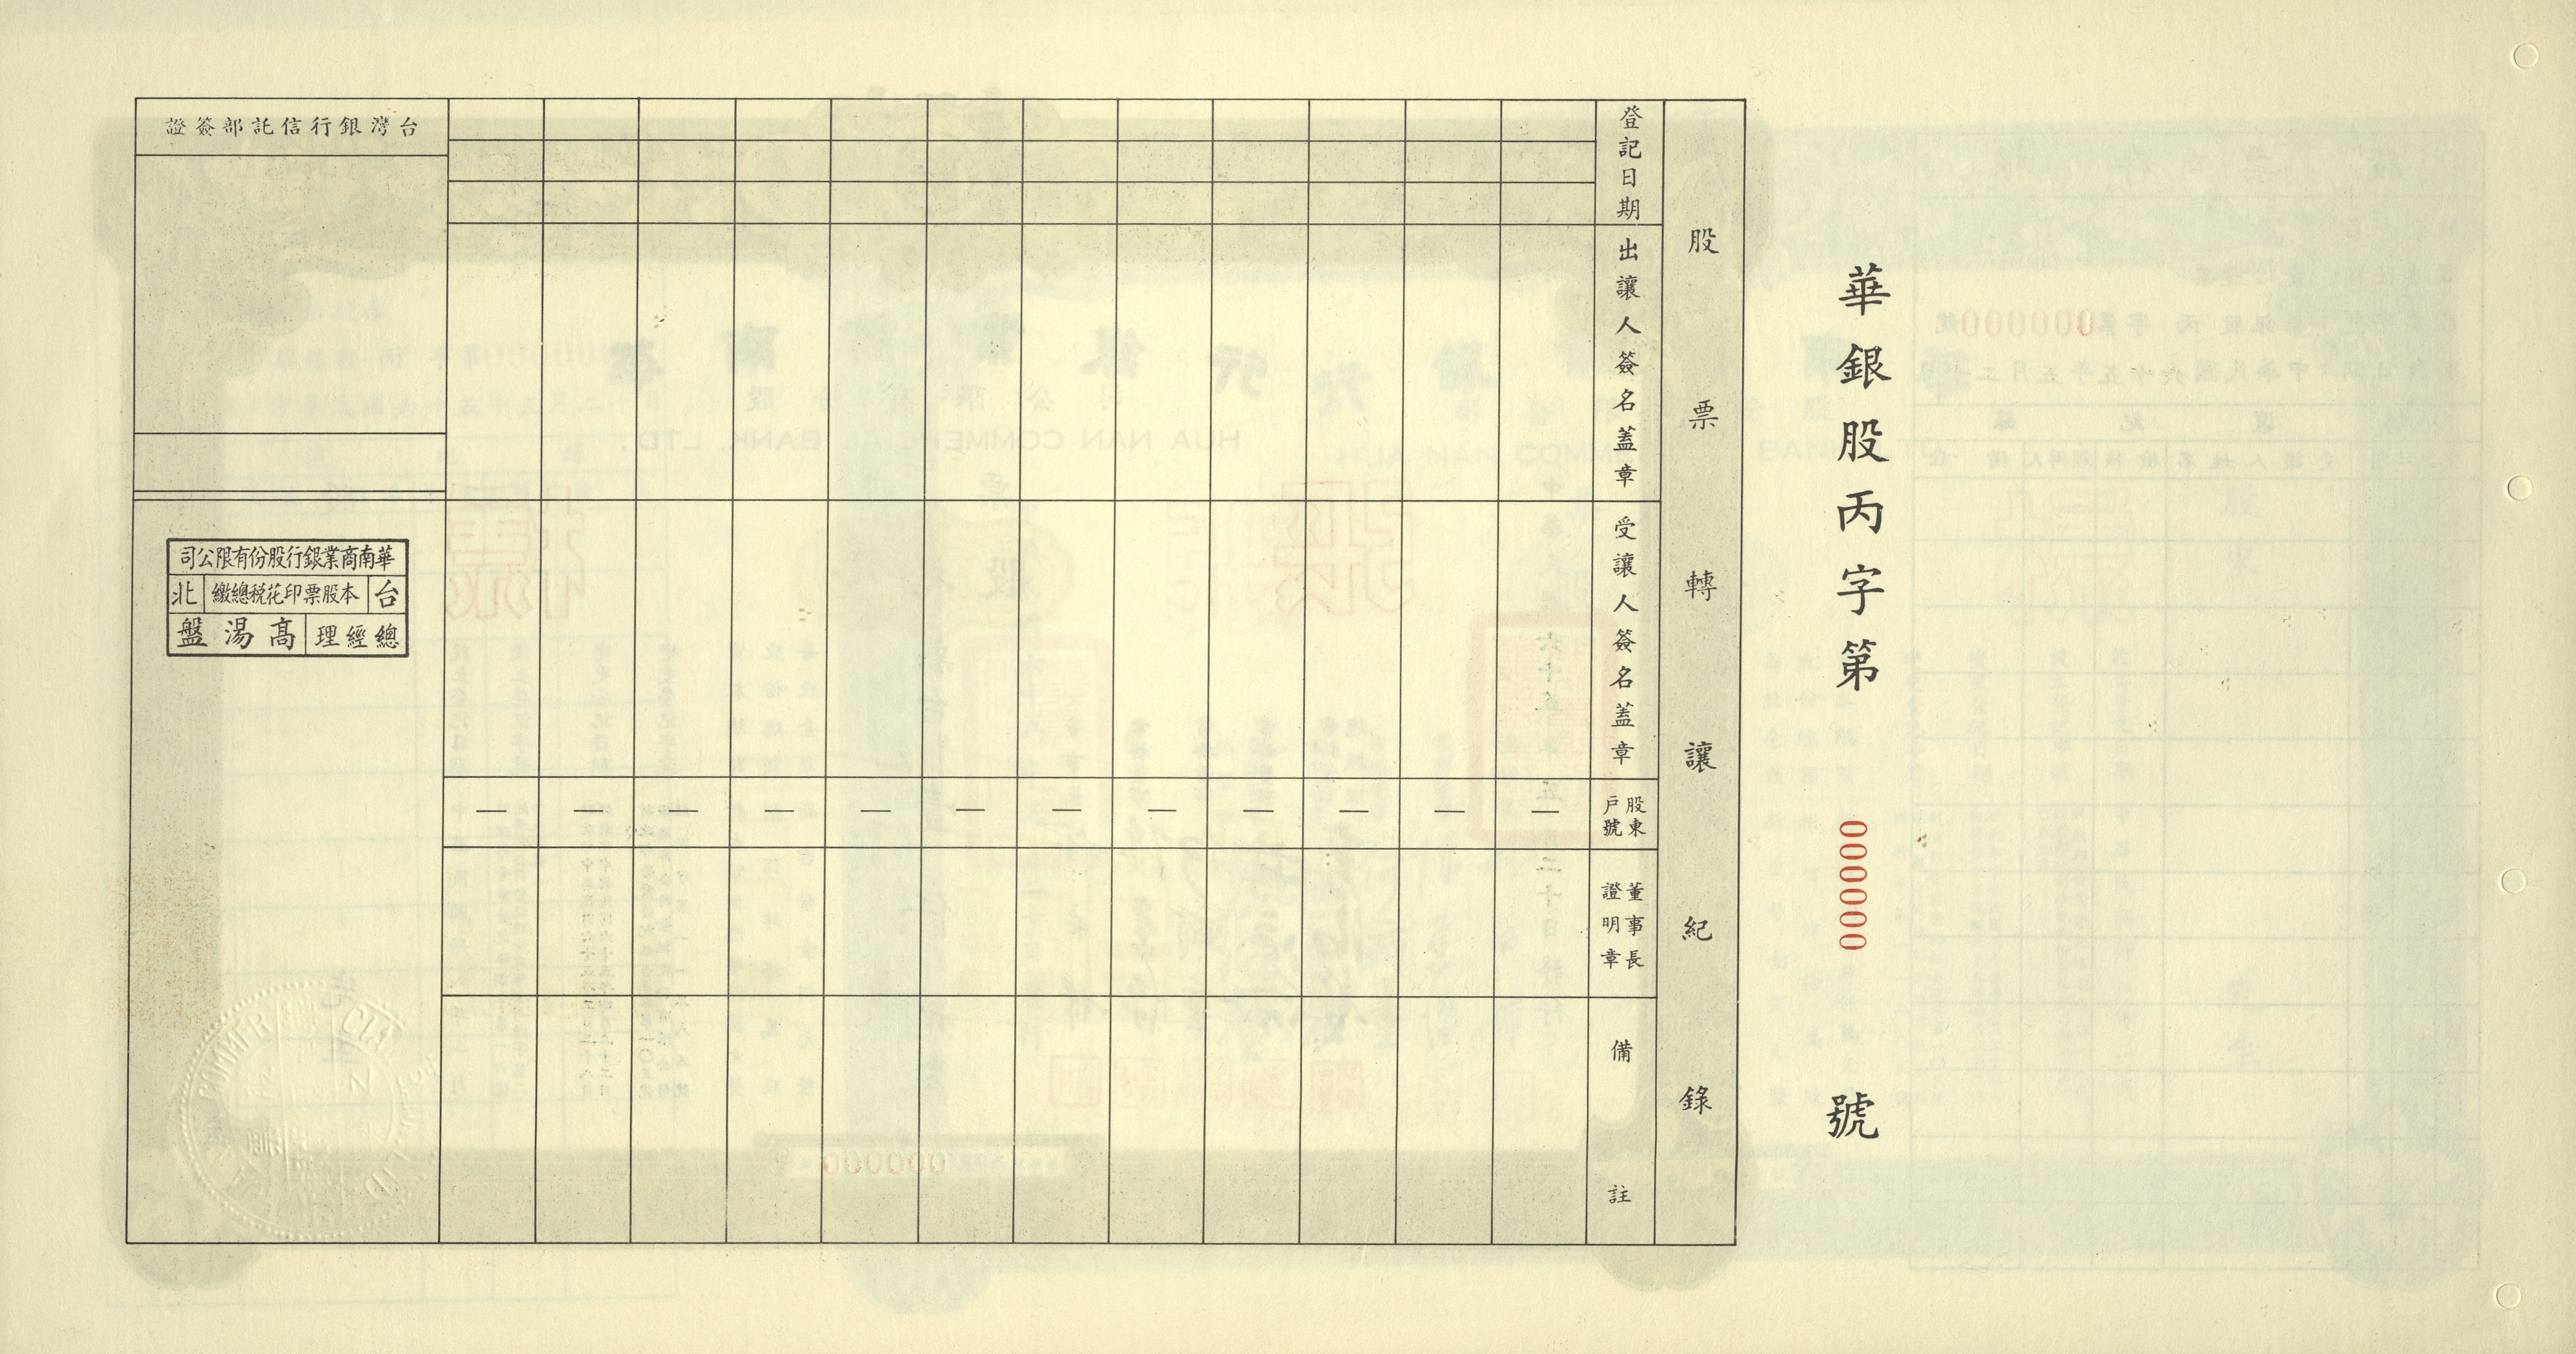 華銀股丙字第 000000 號
股票轉讓紀錄
登記日期
出讓人簽名蓋章
受讓人簽名蓋章
股東戶號
董事長證明章
備註
— — — — — — — — — — — —
台灣銀行信託部簽證
華南商業銀行股份有限公司
台 本股票印花稅總繳 北
總經理 高湯盤
HUA NAN COMMERCIAL BANK, LTD.
000000